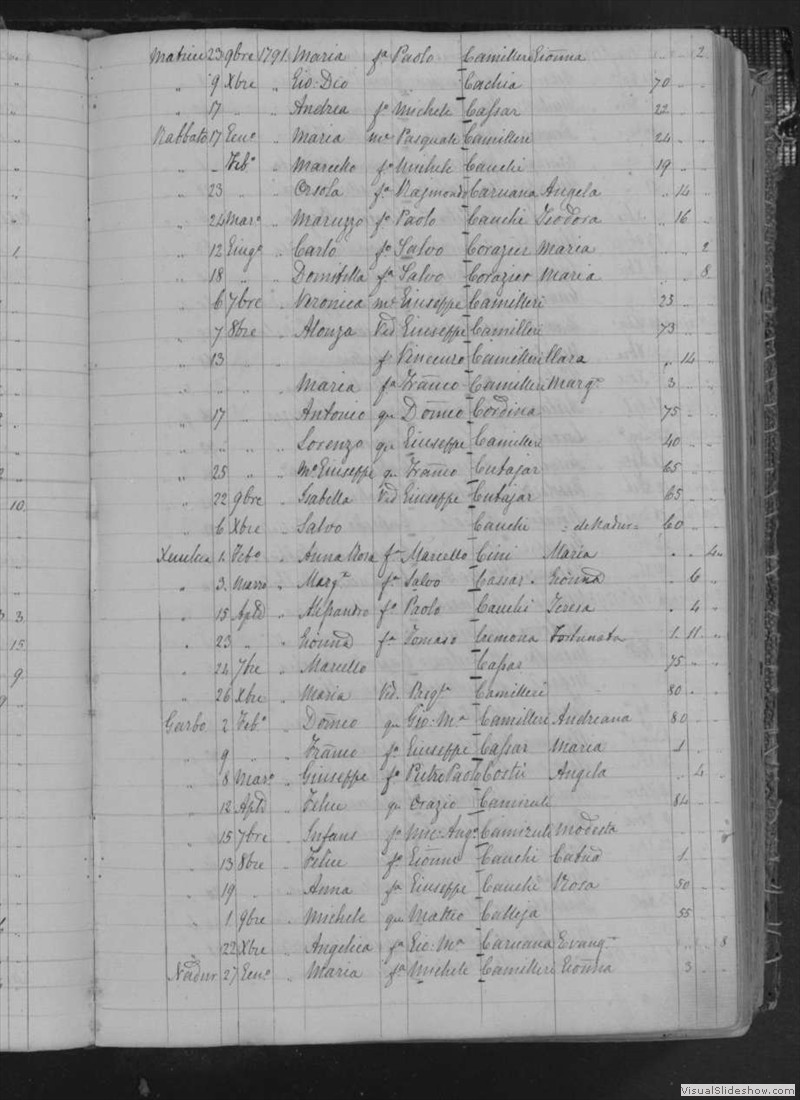 Matrice 23 9bre 1791 Maria fa Paolo Camilleri Gioñna .. .. 2
" 9 Xbre " Gio-Dio Cachia 70 .. ..
" 17 " " Andrea fo Michele Cassar 22 .. ..
Rabbato 17 Gen° " Maria me Pasquale Camilleri 24 .. ..
" - Feb° " Marcello fo Michele Cauchi 19 .. ..
" 23 " " Orsola fa Raymondo Caruana Angela .. 14 ..
" 24 Mar° " Maruzzo fo Paolo Cauchi Teodora .. 16 ..
" 12 Giug° " Carlo fo Salvo Corazier Maria .. .. 2
" 18 " " Domitilla fa Salvo Corazier Maria .. .. 8
" 6 7bre " Veronica me Giuseppe Camilleri 23 .. ..
" 7 8bre " Alonza Vid Giuseppe Camilleri 73 .. ..
" 13 " " fo Vincenzo Camilleri Clara .. 14 ..
" " " " Maria fa Frañco Camilleri Margta 3 .. ..
" 17 " " Antonio qm Doñico Cordina 75 .. ..
" " " " Lorenzo qm Giuseppe Camilleri 40 .. ..
" 25 " " Mo Giuseppe qm Frañco Cutajar 65 .. ..
" 22 9bre " Isabella Vid Giuseppe Cutajar 65 .. ..
" 6 Xbre " Salvo Cauchi = de Nadur = 60 .. ..
Xeuchia 1. Feb° " Anna Rosa fa Marcello Cini Maria . .. 4
" 3. Marzo " Margta fa Salvo Cassar . Gioñna . 6 ..
" 15 Aple " Alessandro fo Paolo Cauchi Teresa . 4 ..
" 23 " " Gioñna fa Tomaso Cremona Fortunata 1. 11 ..
" 24 7bre " Marcello Cassar 75 .. ..
" 26 Xbre " Maria Vid. Camilleri 80 . .
Garbo 2 Feb° " Doñico qm Gio: Ma Camilleri Andreana 80 . .
" 9 " " Frañco fo Giuseppe Cassar Maria 1 . .
" 8 Mar° " Giuseppe fo Pietro Paolo Costū Angela .. 4 .
" 12 Aple " Felice qm Orazio Camizuli 84 . .
" 15 7bre " Infans fo Mic: Ang° Camizuli Modesta
" 13 8bre " Felice fo Gioñne Cauchi Catña 1. . .
" 19 " " Anna fa Giuseppe Cauchi Rosa 50 . .
" 1 9bre " Michele qm Matteo Calleja 55 . .
" 22 Xbre " Angelica fa Gio: Ma Caruana Evangta .. . 8
Nadur 27 Gen° " Maria fa Michele Camilleri Gioñna 3 . .
1
10
3 3
15
9
VisualSlideshow.com